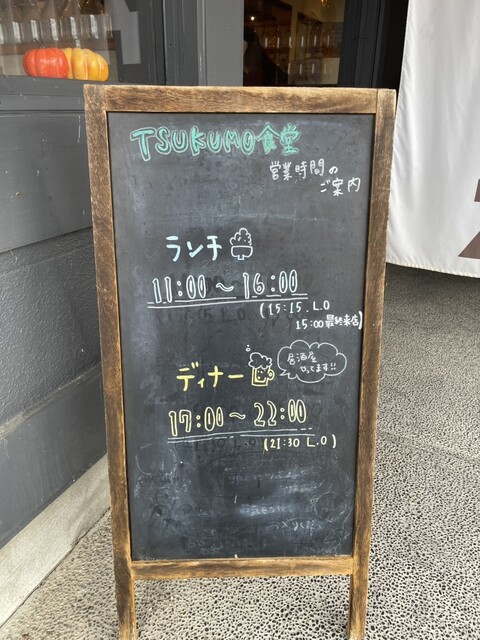 TSUKUMO食堂
営業時間の
ご案内
ランチ
11:00～16:00
(15:15. L.O
15:00最終来店)
ディナー
居酒屋
やってます!!
17:00～22:00
(21:30 L.O)